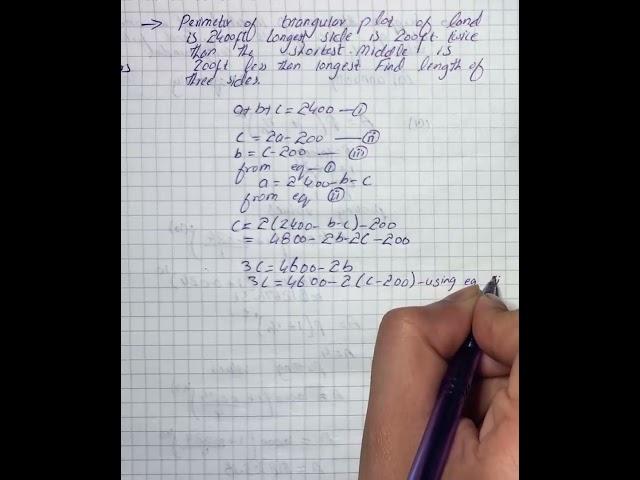 → Perimeter of trangular plot of land
is 2400ft. longest side is 200ft twice
than the shortest. Middle is
200ft less than longest Find length of
three sides.
a+b+c=2400 — i
c=2a-200 — ii
b=c-200 — iii
from eq - i
a=2400-b-c
from eq ii
c=2(2400-b-c)-200
= 4800-2b-2c-200
3c=4600-2b
3c=4600-2(c-200)-using eq